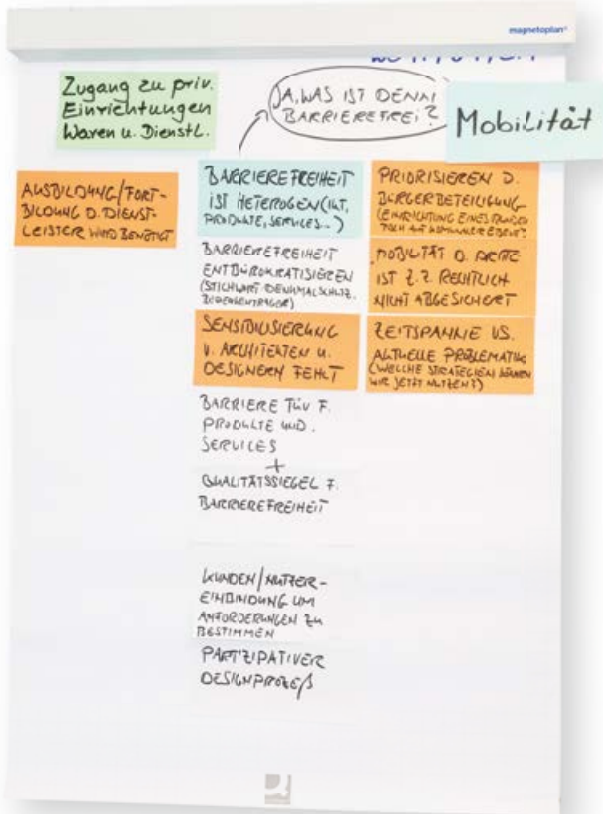 magnetoplan®
Zugang zu priv.
Einrichtungen
Waren u. Dienstl.
JA, WAS IST DENN
BARRIEREFREI?
Mobilität
AUSBILDUNG/FORT-
BILDUNG D. DIENST-
LEISTER WIRD BENÖTIGT
BARRIEREFREIHEIT
IST HETEROGEN (IKT,
PRODUKTE, SERVICES...)
BARRIEREFREIHEIT
ENTBÜROKRATISIEREN
(STICHWORT DENKMALSCHUTZ.
SENSIBILISIERUNG
V. ARCHITEKTEN U.
DESIGNERN FEHLT
BARRIERE TÜV F.
PRODUKTE UND.
SERVICES
+
QUALITÄTSSIEGEL F.
BARRIEREFREIHEIT
KUNDEN/NUTZER-
EINBINDUNG UM
ANFORDERUNGEN ZU
BESTIMMEN
PARTZIPATIVER
DESIGNPROZEß
PRIORISIEREN D.
BÜRGERBETEILIGUNG
(EINRICHTUNG EINES RUNDEN
TISCH AUF KOMMUNALER EBENE?
MOBILITÄT D.
IST Z.Z. RECHTLICH
NICHT ABGESICHERT
ZEITSPANNE VS.
AKTUELLE PROBLEMATIK
(WELCHE STRATEGIEN KÖNNEN
WIR JETZT NUTZEN?)